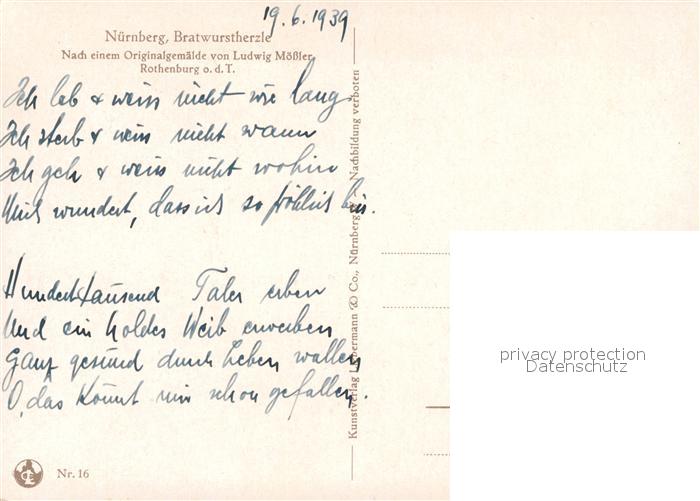 19.6.1939
Nürnberg, Bratwurstherzle
Nach einem Originalgemälde von Ludwig Mößler,
Rothenburg o. d. T.
Ich leb & weiss nicht wie lang
Ich sterb & weiss nicht wann
Ich geh & weiss nicht wohin
Mich wundert, dass ich so fröhlich bin.
Hunderttausend Taler erben
Und ein holdes Weib erwerben
Ganz gesund durch Leben wallen
O, das könnt mir schon gefallen.
Kunstverlag & Co., Nürnberg Nachbildung verboten
Nr. 16
privacy protection
Datenschutz